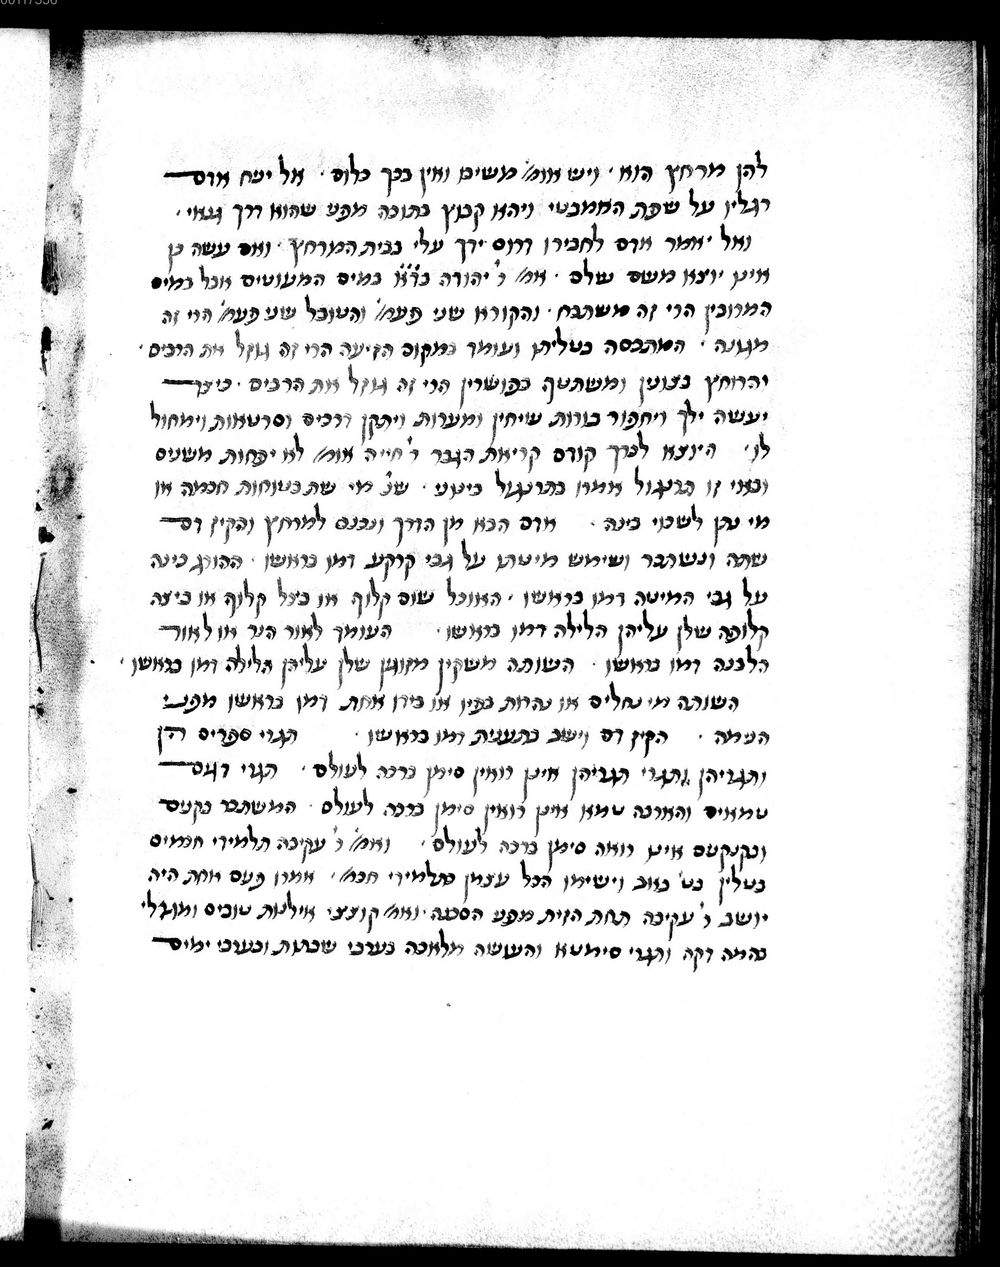 להן מרחץ הוא · ויש אומ' משים ואין בכך כלום · אל יניח אדם
רגליו על שפת האמבטי ויהא קבוץ בתוכה מפני שהוא דרך גנאי ·
ואל יאמר אדם לחבירו דרוס ידך עלי בבית המרחץ · ואם עשה כן
אינו יוצא משם שלם · אמ' ר' יהודה בד"א במים המעוטים אבל במים
המרובין הרי זה משתבח · והקורא שני פעמ' והטובל שני פעמ' הרי זה
מגונה · המתכסה בטליתו ועומד במקום הזיעה הרי זה גוזל את הרבים ·
והרוחץ בצונין ומשתטף בפושרין הרי זה גוזל את הרבים · כיצד
יעשה ילך ויחפור בורות שיחין ומערות ויתקן דרכים וסרטאות וימחול
לו · היוצא לדרך קודם קריאת הגבר ר' חייה אומ' לא יפחות משנים
ובאי זו תרנגול אמרו בתרנגול בינוני · שנ' מי שת בטוחות חכמה או
מי נתן לשכוי בינה · אדם הבא מן הדרך ונכנס למרחץ והקיז דם
שתה ונשתכר ושימש מיטתו על גבי קרקע דמו בראשו · ההורג כינה
על גבי המיטה דמו בראשו · האוכל שום קלוף או בצל קלוף או ביצה
קלופה שלן עליהן הלילה דמו בראשו · העומד לאור הנר או לאור
הלבנה דמו בראשו · השותה משקין מזוגין שלן עליהן הלילה דמו בראשו ·
השותה מי נחלים או נהרות בפיו או בידו אחת דמו בראשו מפני
העימה · הקיז דם וישב בתענית דמו בראשו · תגרי ספרים הן
ותגריהן ותגרי תגריהן אינן רואין סימן ברכה לעולם · תגרי דגים
טמאים והארבה טמא אינן רואין סימן ברכה לעולם · המשתכר בקנים
ובקנקנים אינו רואה סימן ברכה לעולם · ואמ' ר' עקיבה תלמידי חכמים
בטלין בט' באב וישימו הכל עצמן כתלמידי חכמ' · אמרו פעם אחת היה
יושב ר' עקיבה תחת הזית מפני הסכנה · ואמ' קוצצי אילנות טובים ומגדלי
בהמה דקה ותגרי סימטא והעושה מלאכה בערבי שבתות ובערבי ימים